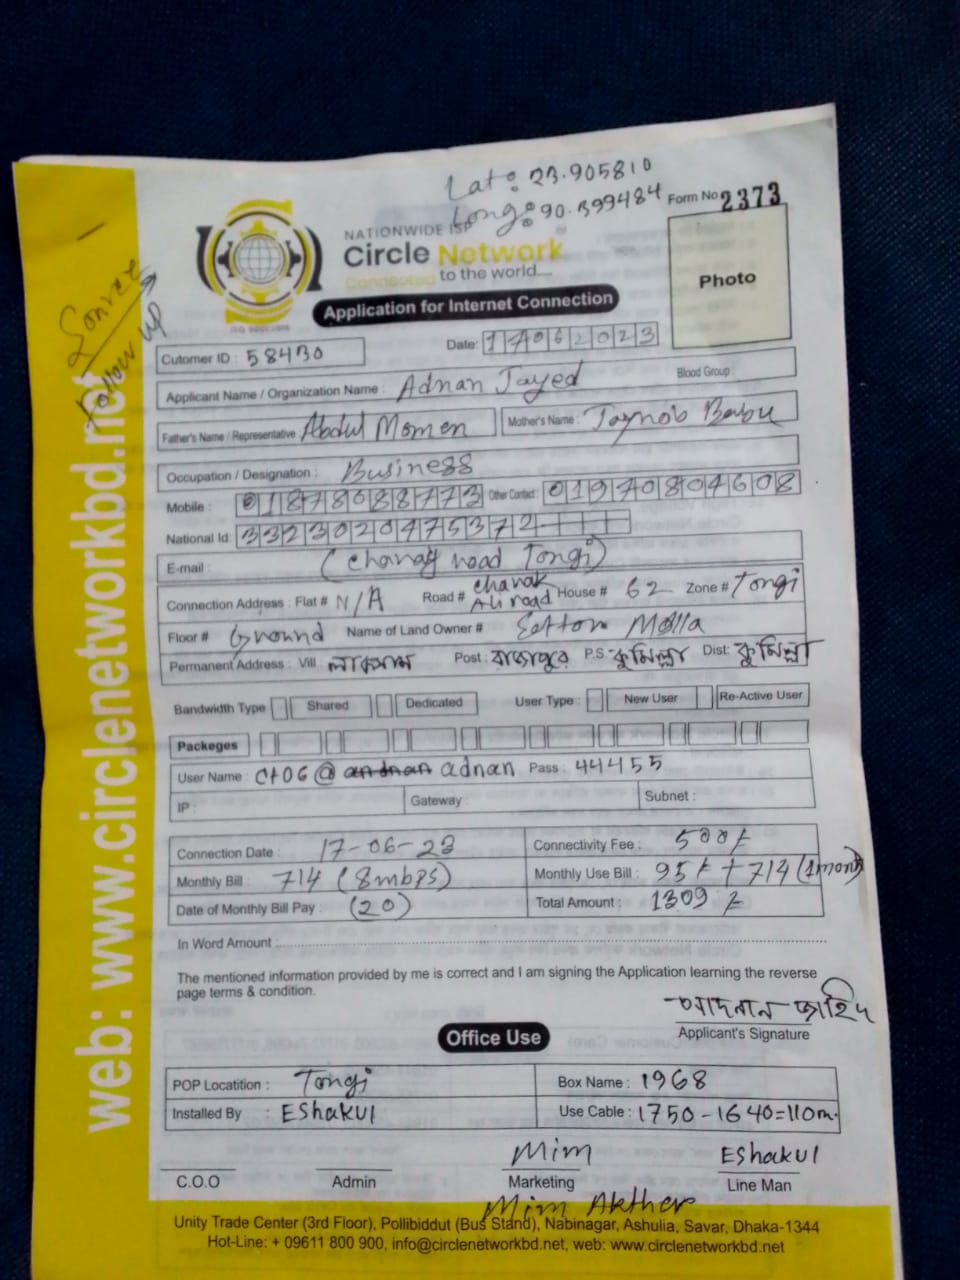 Lat: 23.905810
Long: 90.399484
Form No 2373
NATIONWIDE ISP
Circle Network
Connected to the world....
ISO 9001:2015
Photo
Application for Internet Connection
Follow up
Date: 17062023
Cutomer ID : 58430
Applicant Name / Organization Name : Adnan Jayed
Blood Group :
Father's Name / Representative Abdul Momen Mother's Name : Jaynob Babu
Occupation / Designation : Business
Mobile : 01878088773 Other Contact : 01970804608
National Id: 3323020475372
E-mail : (Charag road Tongi)
Connection Address : Flat # N/A Road # Charak Ali road House # 62 Zone # Tongi
Floor # Ground Name of Land Owner # Molla
Permanent Address : Vill লাকসাম Post : রাজাপুর P.S কুমিল্লা Dist: কুমিল্লা
Bandwidth Type Shared Dedicated User Type : New User Re-Active User
Packeges
User Name : ct06@adnan Pass : 44455
IP : Gateway : Subnet :
Connection Date : 17-06-23 Connectivity Fee : 500/-
Monthly Bill : 714 (8mbps) Monthly Use Bill : 95/- + 714 (1month)
Date of Monthly Bill Pay : (20) Total Amount : 1309/-
In Word Amount :
The mentioned information provided by me is correct and I am signing the Application learning the reverse
page terms & condition.
আদনান জাহিদ
Applicant's Signature
Office Use
POP Locatition : Tongi Box Name : 1968
Installed By : EShakul Use Cable : 1750-1640=110m.
Mim EShakul
C.O.O Admin Marketing Line Man
Mim Akther
Unity Trade Center (3rd Floor), Pollibiddut (Bus Stand), Nabinagar, Ashulia, Savar, Dhaka-1344
Hot-Line: + 09611 800 900, info@circlenetworkbd.net, web: www.circlenetworkbd.net
web: www.circlenetworkbd.net